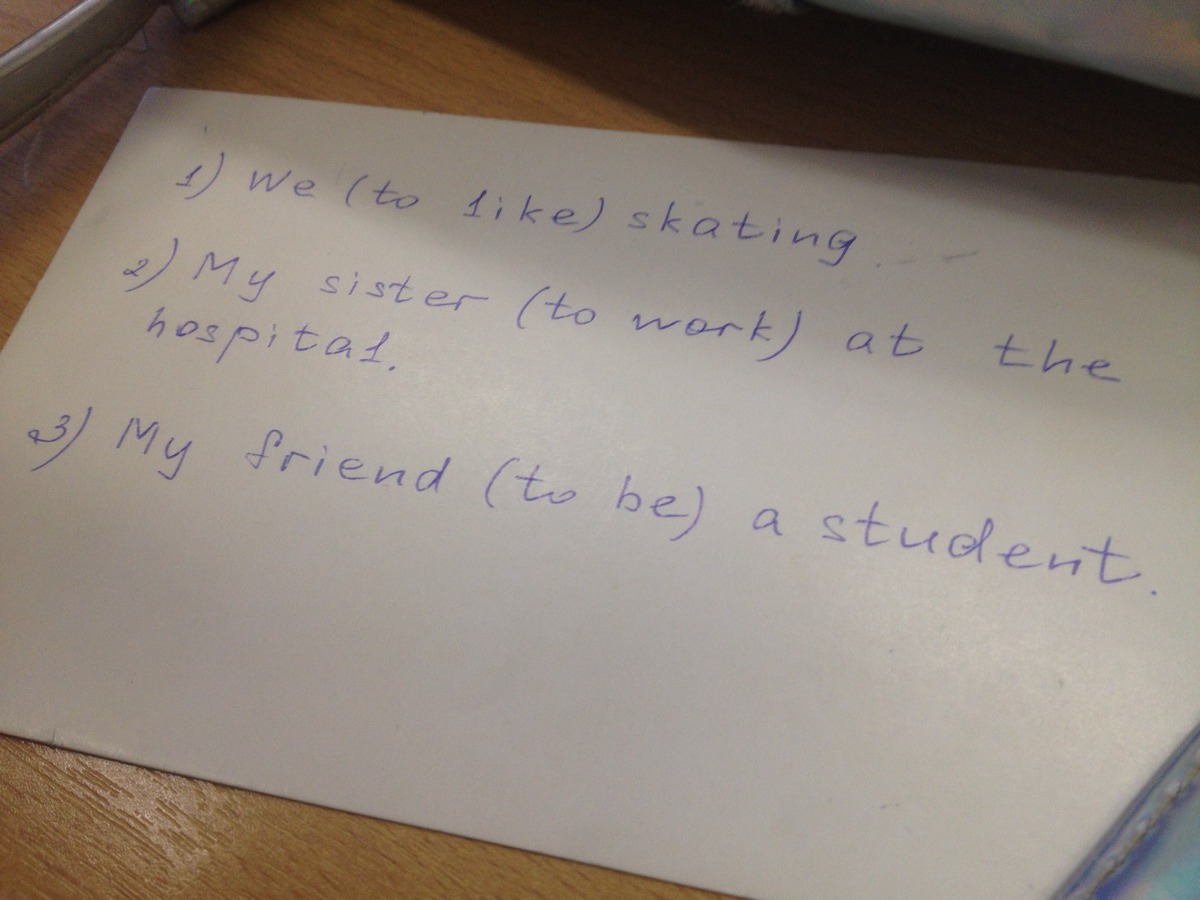 1) We (to like) skating.
2) My sister (to work) at the
hospital.
3) My friend (to be) a student.